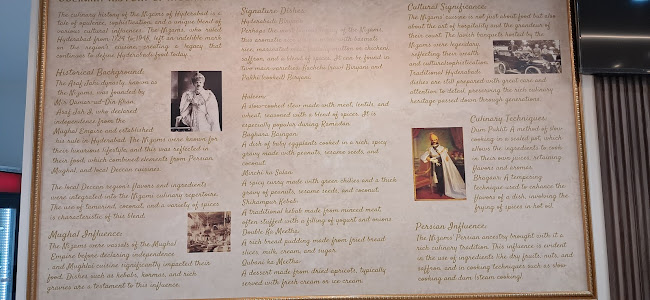 CULINARY HISTORY OF
The culinary history of the Nizams of Hyderabad is a
tale of opulence, sophistication, and a unique blend of
various cultural influences. The Nizams, who ruled
Hyderabad from 1724 to 1948, left an indelible mark
on the region's cuisine, creating a legacy that
continues to define Hyderabadi food today.
Historical Background:
The Asaf Jahi dynasty, known as
the Nizams, was founded by
Mir Qamar-ud-Din Khan,
Asaf Jah I, who declared
independence from the
Mughal Empire and established
his rule in Hyderabad. The Nizams were known for
their luxurious lifestyle, and this was reflected in
their food, which combined elements from Persian,
Mughlai, and local Deccan cuisines.
The local Deccan region's flavors and ingredients
were integrated into the Nizams' culinary repertoire.
The use of tamarind, coconut, and a variety of spices
is characteristic of this blend.
Mughal Influence:
The Nizams were vassals of the Mughal
Empire before declaring independence,
and Mughlai cuisine significantly impacted their
food. Dishes such as kebabs, kormas, and rich
gravies are a testament to this influence.
Signature Dishes:
Hyderabadi Biryani:
Perhaps the most of the Nizams,
this aromatic with basmati
rice, marinated meat mutton or chicken),
saffron, and a blend of spices. It can be found in
two main varieties: Kachchi (raw) Biryani and
Pakki (cooked) Biryani.
Haleem:
A slow-cooked stew made with meat, lentils, and
wheat, seasoned with a blend of spices. It is
especially popular during Ramadan.
Baghara Baingan:
A dish of baby eggplants cooked in a rich, spicy
gravy made with peanuts, sesame seeds, and
coconut.
Mirchi ka Salan:
A spicy curry made with green chilies and a thick
gravy of peanuts, sesame seeds, and coconut.
Shikampur Kebab:
A traditional kebab made from minced meat,
often stuffed with a filling of yogurt and onions.
Double Ka Meetha:
A rich bread pudding made from fried bread
slices, milk, cream, and sugar.
Qubani ka Meetha:
A dessert made from dried apricots, typically
served with fresh cream or ice cream.
Cultural Significance:
The Nizams' cuisine is not just about food but also
about the art of hospitality and the grandeur of
their court. The lavish banquets hosted by the
Nizams were legendary,
reflecting their wealth
and cultural sophistication.
Traditional Hyderabadi
dishes are still prepared with great care and
attention to detail, preserving the rich culinary
heritage passed down through generations.
Culinary Techniques:
Dum Pukht: A method of slow-
cooking in a sealed pot, which
allows the ingredients to cook
in their own juices, retaining
flavors and aromas.
Bhagar: A tempering
technique used to enhance the
flavors of a dish, involving the
frying of spices in hot oil.
Persian Influence:
The Nizams' Persian ancestry brought with it a
rich culinary tradition. This influence is evident
in the use of ingredients like dry fruits, nuts, and
saffron, and in cooking techniques such as slow-
cooking and dum (steam cooking).